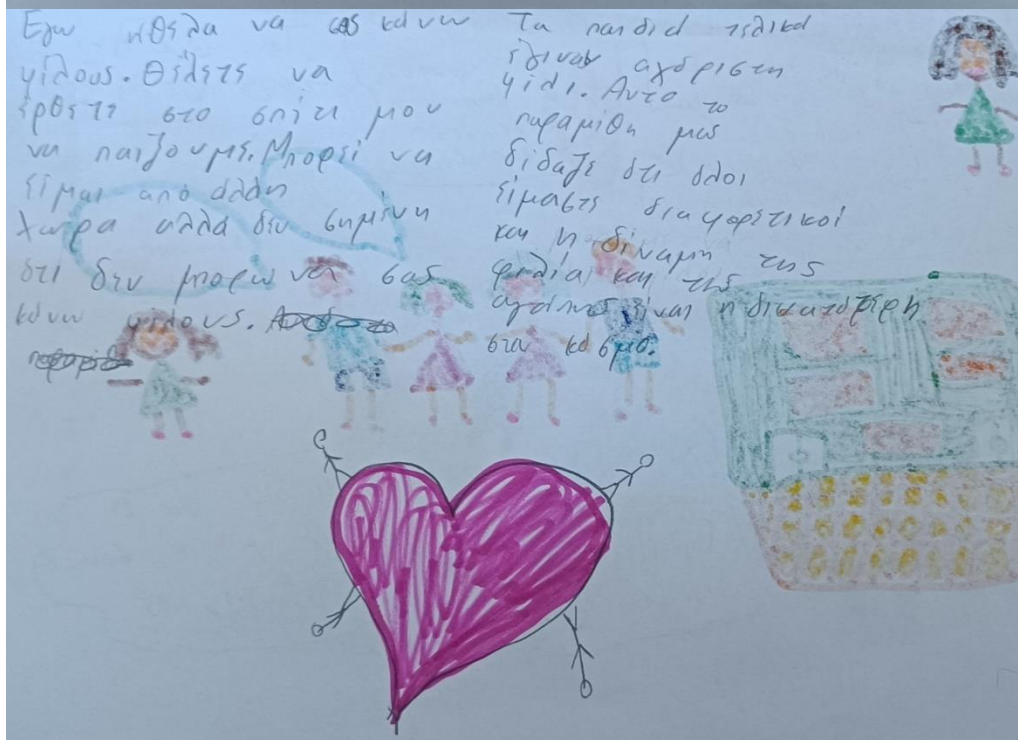 Εγω ήθελα να σας κάνω
φίλους. Θέλετε να
έρθετε στο σπίτι μου
να παίζουμε. Μπορεί να
είμαι από άλλη
χώρα αλλά δεν σημένη
ότι δεν μπορω να σας
κάνω φίλους.
Τα παιδιά τελικά
έγιναν αχόριστη
φίλι. Αυτο το
παραμίθη μας
δίδαξε ότι όλοι
είμαστε διαφορετικοί
και η δίναμη της
φιλίας και της
αγάπης είναι η δινατότερη
στο κόσμο.